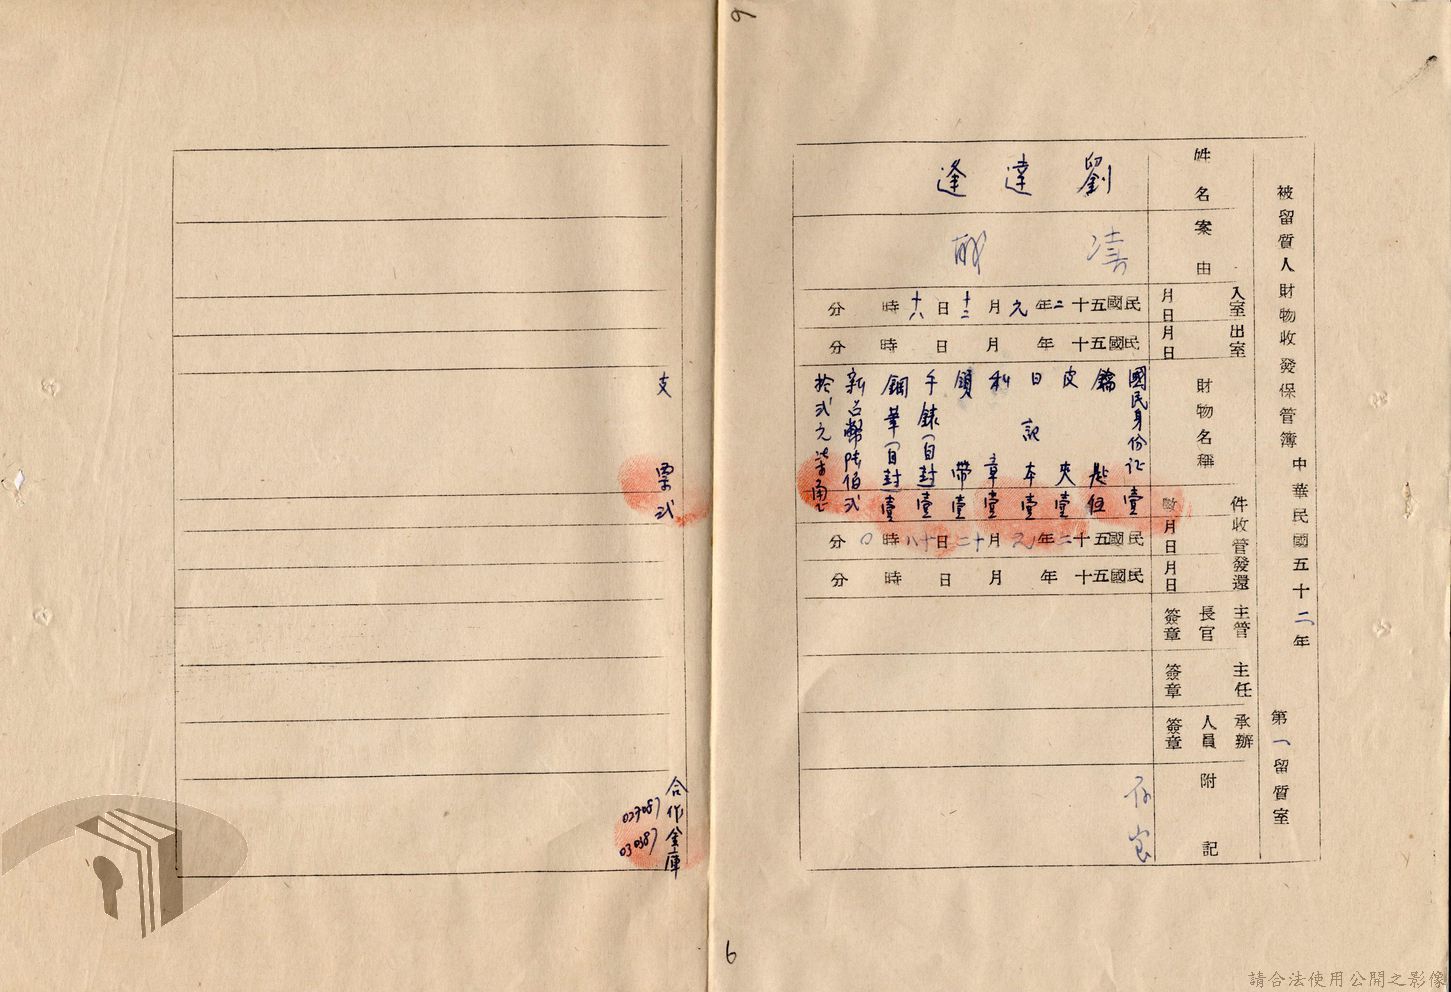 被留質人財物收發保管簿 中華民國五十二年 第一留質室
姓名 劉達逢
案由 瀆職
入室月日 民國五十二年元月十二日十八時 分
出室月日 民國五十 年 月 日 時 分
財物名稱 件數
國民身份证 壹
鑰匙 伍
皮夾 壹
日記本 壹
私章 壹
領帶 壹
手錶(自封) 壹
鋼筆(自封) 壹
新台幣陸伯弍
拾弍元柒角
支票 弍
收管月日 民國五十二年元月十二日十八時〇分
發還月日 民國五十 年 月 日 時 分
主管長官簽章
主任簽章
承辦人員簽章
附記
合作金庫
027087
030387
6
6
請合法使用公開之影像